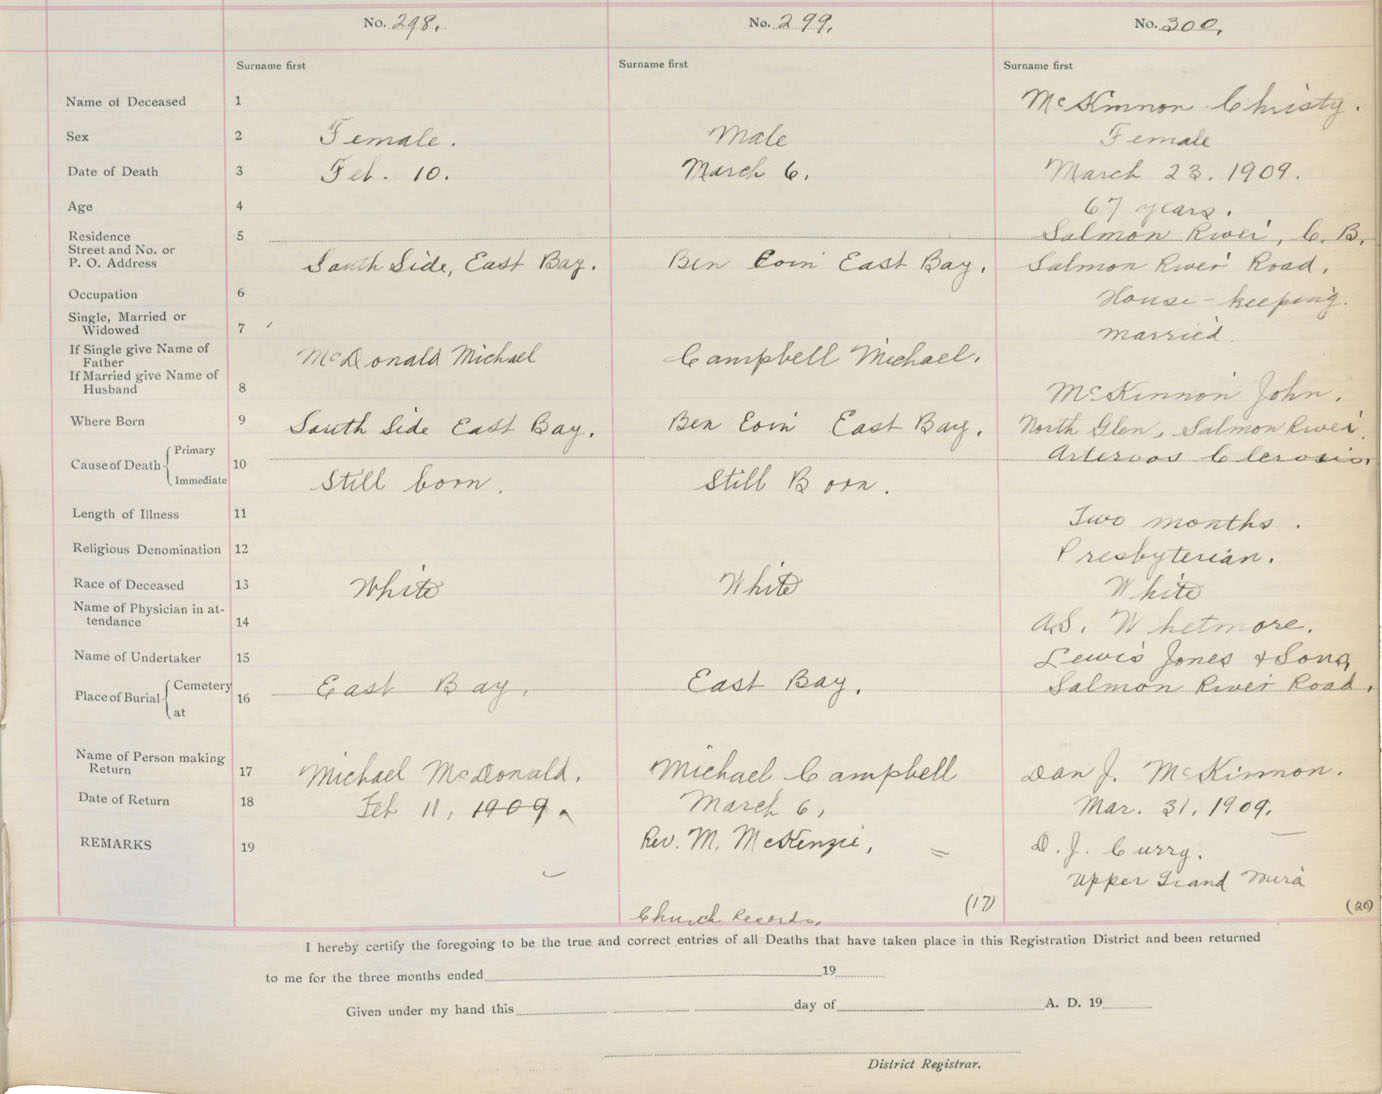 No. 298. No. 299. No. 300.
Surname first Surname first Surname first
Name of Deceased 1 McKinnon Christy.
Sex 2 Female. Male Female
Date of Death 3 Feb. 10. March 6, March 23. 1909.
Age 4 67 years.
Residence 5 Salmon River, C. B.
Street and No. or
P. O. Address South Side, East Bay. Ben Eoin East Bay, Salmon River Road,
Occupation 6 House-keeping.
Single, Married or
Widowed 7 married.
If Single give Name of
Father McDonald Michael Campbell Michael.
If Married give Name of
Husband 8 McKinnon John,
Where Born 9 South Side East Bay, Ben Eoin East Bay, North Glen, Salmon River.
Cause of Death Primary 10 Arteroos Clerosis,
Immediate Still born. Still Born.
Length of Illness 11 Two months.
Religious Denomination 12 Presbyterian.
Race of Deceased 13 White White White
Name of Physician in at-
tendance 14 A.S. Whetmore.
Name of Undertaker 15 Lewis Jones & Sons,
Place of Burial Cemetery 16 East Bay, East Bay, Salmon River Road,
at
Name of Person making
Return 17 Michael McDonald. Michael Campbell Dan J. McKinnon.
Date of Return 18 Feb 11, 1909. March 6, Mar. 31, 1909.
REMARKS 19 Rev. M. McKenzie, = D. J. Curry.
Upper Grand Mira
Church Records, (17) (20)
I hereby certify the foregoing to be the true and correct entries of all Deaths that have taken place in this Registration District and been returned
to me for the three months ended 19
Given under my hand this day of A. D. 19
District Registrar.